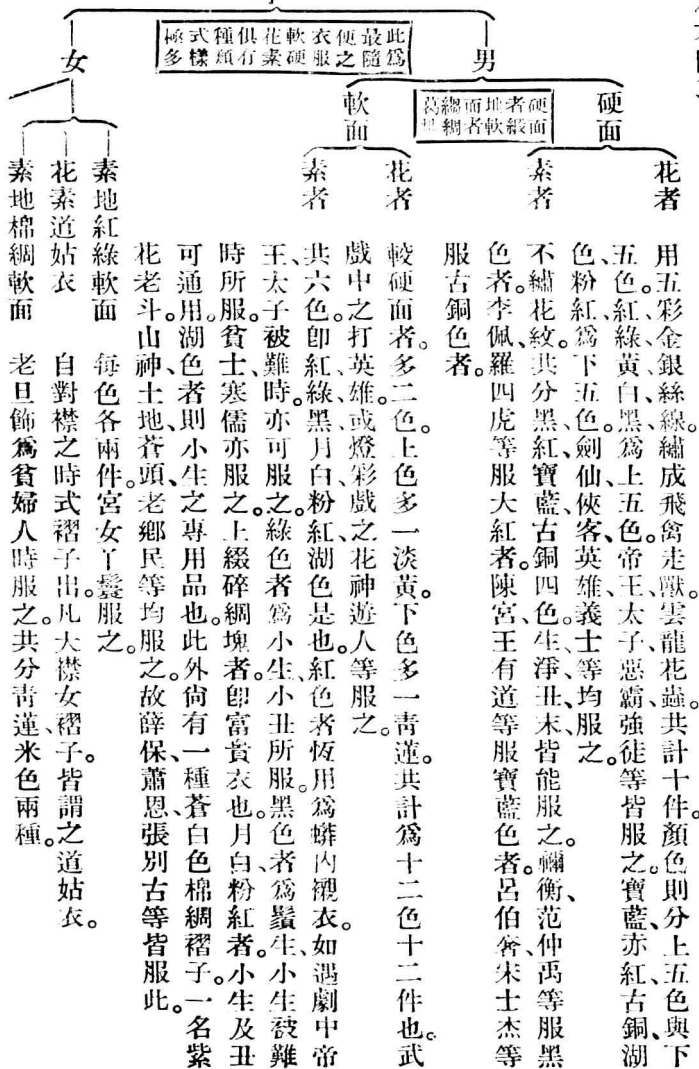 此爲
最隨
便之
衣服
軟硬
花素
俱有
種類
式樣
極多
男
硬面者緞
地面者軟
綢
硬面
花者
用五彩金銀絲線。繡成飛禽走獸。雲龍花蟲。共計十件。顏色則分上五色與下
五色。紅、綠、黃、白、黑、爲上五色。帝王太子、惡霸強徒等皆服之。寶藍、赤紅、古銅、湖
色、粉紅、爲下五色。劍仙俠客、英雄義士等均服之。
素者
不繡花紋。共分黑、紅、寶藍、古銅四色。生、淨、丑、末、皆能服之。禰衡、范仲禹等服黑
色者。李佩、羅四虎等服大紅者。陳宮、王有道等服寶藍色者。呂伯奢、宋士杰等
服古銅色者。
軟面
花者
較硬面者。多二色。上色多一淡黃。下色多一靑蓮。共計爲十二色十二件也。武
戲中之打英雄。或燈彩戲之花神遊人等服之。
素者
共六色。卽紅、綠、黑、月白、粉紅、湖色是也。紅色者恆用爲蟒內襯衣。如遇劇中帝
王、太子被難時。亦可服之。綠色者爲小生、小丑所服。黑色者爲鬚生、小生被難
時所服。貧士寒儒亦服之。上綴碎綢塊者。卽富貴衣也。月白、粉紅者。小生及丑
可通用。湖色者則小生之專用品也。此外尙有一種蒼白色棉綢褶子。一名紫
花老斗。山神、土地、蒼頭、老鄉民等均服之。故薛保、蕭恩、張別古等皆服此。
女
素地紅綠軟面
每色各兩件。宮女丫鬟服之。
花素道姑衣
自對襟之時式褶子出。凡大襟女褶子。皆謂之道姑衣。
素地棉綢軟面
老旦飾爲貧婦人時服之。共分靑蓮、米色兩種。